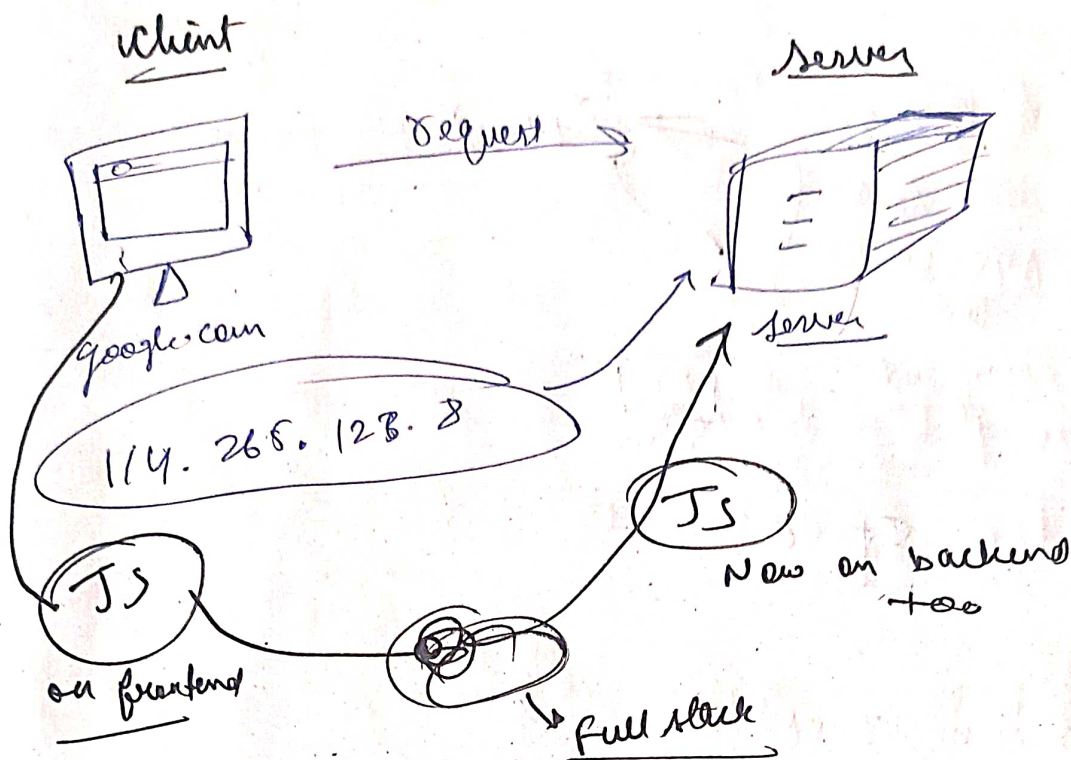 client
server
request
google.com
server
114. 265. 123. 8
JS
Now on backend
too
JS
on frontend
Full stack